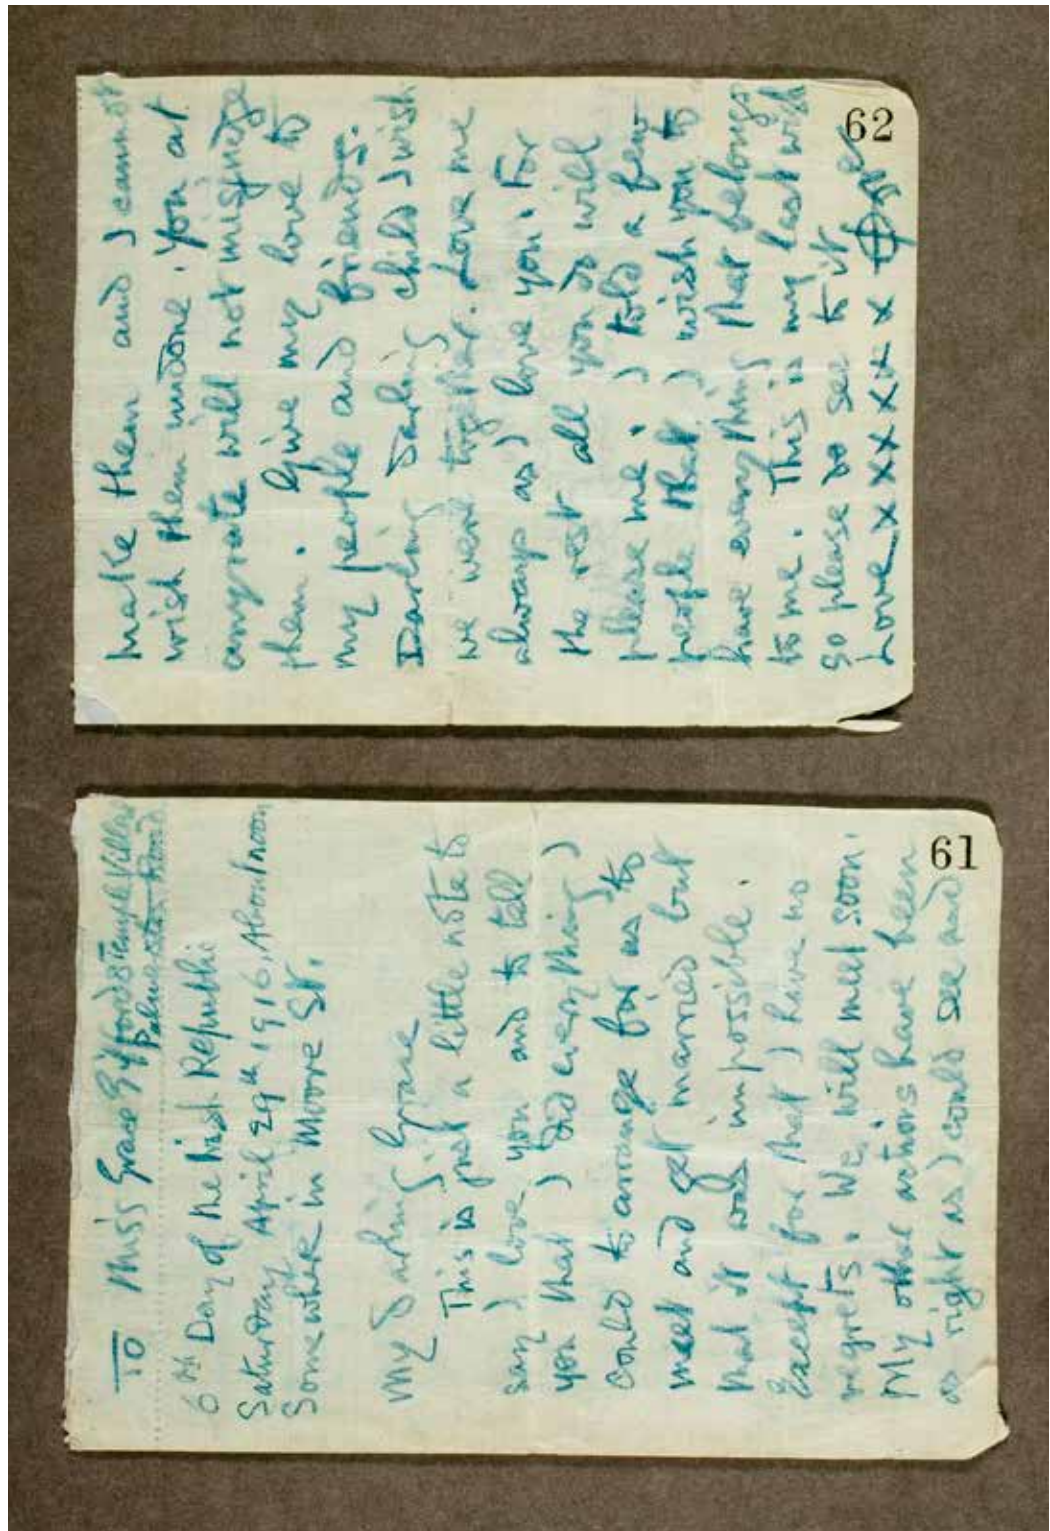 To Miss Grace Gifford 8 Temple Villas
Palmerston Road
6th Day of the Irish Republic
Saturday April 29th 1916. About noon
Somewhere in Moore St.
My Darling Grace
This is just a little note to
say I love you and to tell
you that I did everything I
could to arrange for us to
meet and get married but
that it was impossible.
Except for that I have no
regrets. We will meet soon.
My other actions have been
as right as I could see and
61
make them and I cannot
wish them undone. You at
anyrate will not misjudge
them. Give my love to
my people and friends.
Darling Darling child I wish
we were together. Love me
always as I love you. For
the rest all you do will
please me. I told a few
people that I wish you to
have everything that belongs
to me. This is my last wish
so please do see to it
Love x x x x x x
62